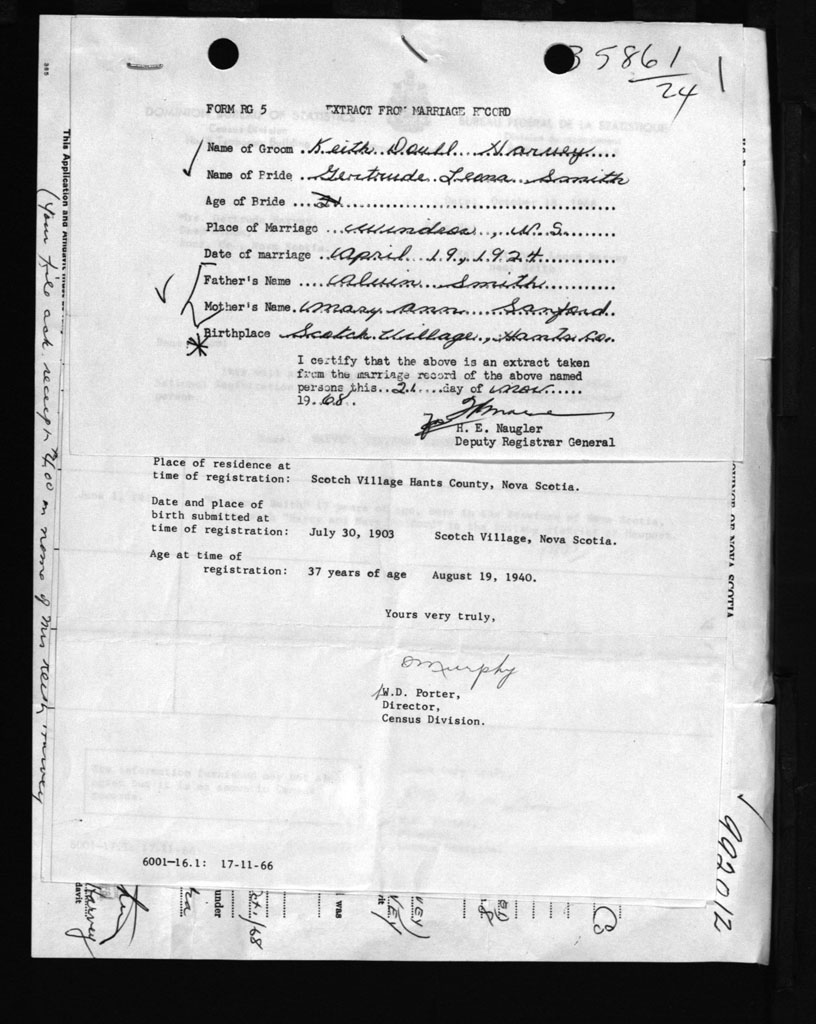 35861
24
FORM RG 5 EXTRACT FROM MARRIAGE RECORD
Name of Groom Keith Doull Harvey
Name of Bride Gertrude Leona Smith
Age of Bride 21
Place of Marriage Windsor, N.S.
Date of marriage April 19, 1924
Father's Name Alvin Smith
Mother's Name Mary Ann Sanford
Birthplace Scotch Village, Hants Co.
I certify that the above is an extract taken
from the marriage record of the above named
persons this 21 day of Nov
19 68.
H. E. Naugler
Deputy Registrar General
Place of residence at
time of registration: Scotch Village Hants County, Nova Scotia.
Date and place of
birth submitted at
time of registration: July 30, 1903 Scotch Village, Nova Scotia.
Age at time of
registration: 37 years of age August 19, 1940.
Yours very truly,
DMurphy
W.D. Porter,
Director,
Census Division.
6001-16.1: 17-11-66
This Application and Affidavit must be
(Your file ask receipt 2400 in name of Mrs Keith Harvey
OF NOVA SCOTIA
992012
Harvey
davit
under
Oct 1/68
I was
VEY)
C3